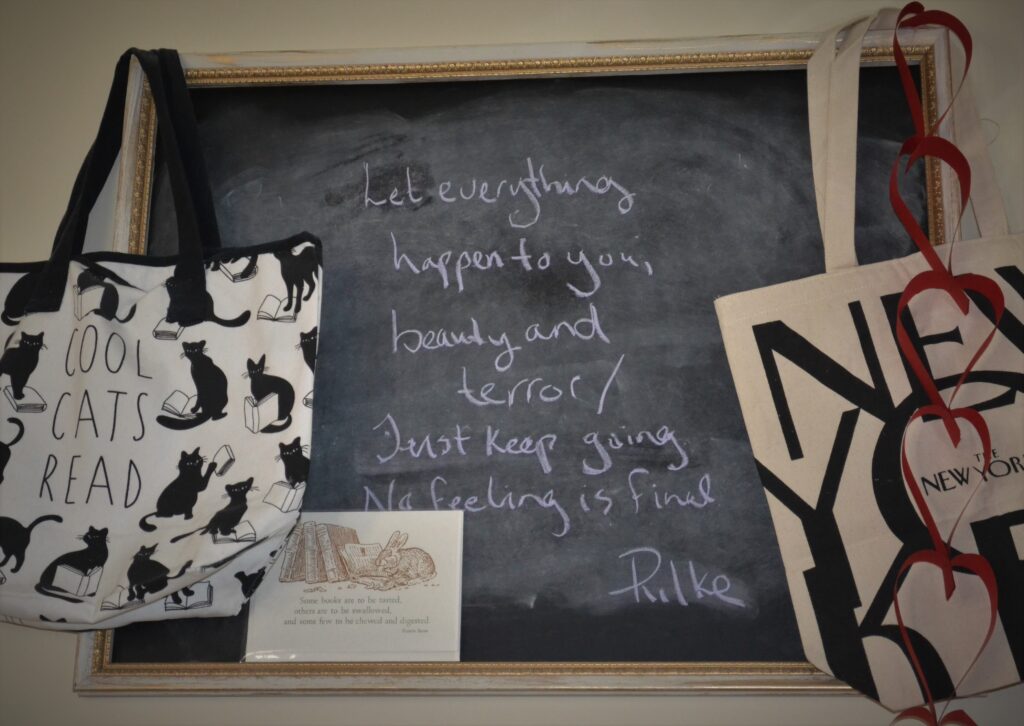 COOL
CATS
READ
Let everything
happen to you,
beauty and
terror/
Just keep going
No feeling is final
Rilke
Some books are to be tasted,
others are to be swallowed,
and some few to be chewed and digested.
Francis Bacon
NEW
YORK
THE
NEW YORK